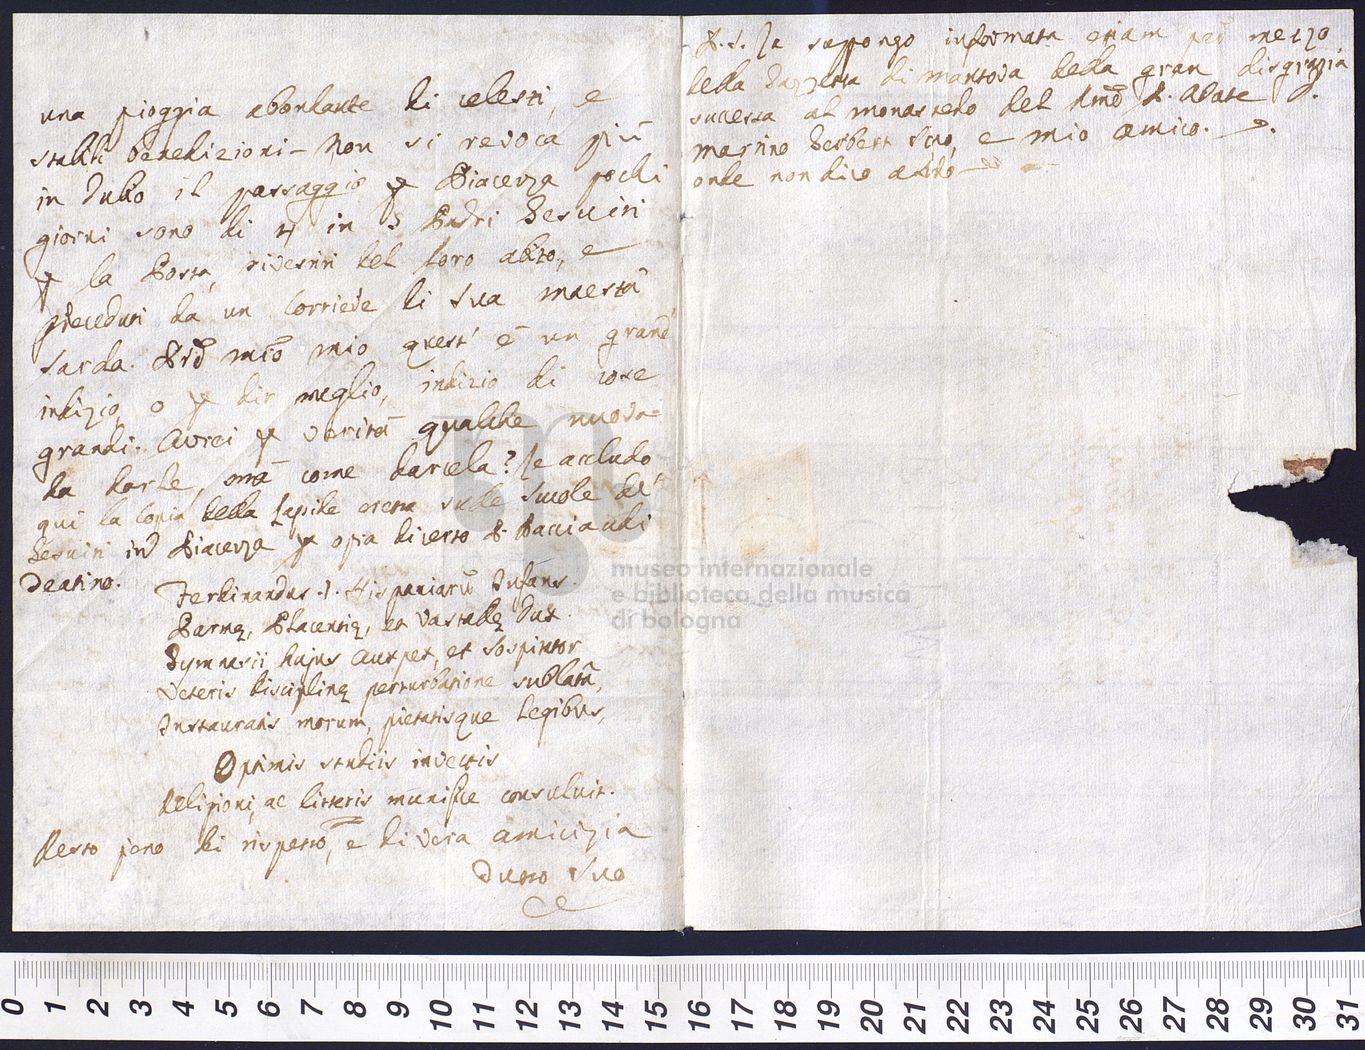 una pioggia abondante di celesti, e
stabili benedizioni - Non si revoca più
in dubio il passaggio p Piacenza pochi
giorni sono di n in 5 Padri Gesuiti
p la Posta, vestiti del loro abito, e
preceduti da un Corriere di Sua Maestà
Sarda. Prē Mrō mio quest' è un grand'
indizio, o p dir meglio, indizio di cose
grandi. Avrei p verità qualche nuova
da darle, ma come darcela? Le accludo
qui la Copia della Lapide eretta su le Scuole de'
Gesuiti in Piacenza p opra di certo P. Pacciaudi
Teatino.
Ferdinandus . I . Hispaniarū Infans
Parmę, Placentię, ea Vastallę Dux
Gymnasii hujus Auspex, et Sospitator
Veteris disciplinę perturbatione sublatā,
Instauratis morum, pietatisque legibus,
Optimis studiis invectis
Religioni, ac litteris munifice consuluit.
Resto pieno di rispetto, e di vera amicizia
Dvtto Suo
P. S. La suppongo informata etiam per mezzo
della Gazzetta di Mantova della gran disgrazia
successa al Monastero del Rmō P. Abate D.
Marino Gerbert Suo, e mio amico.
onde non dico altro
museo internazionale
e biblioteca della musica
di bologna
0 1 2 3 4 5 6 7 8 9 10 11 12 13 14 15 16 17 18 19 20 21 22 23 24 25 26 27 28 29 30 31